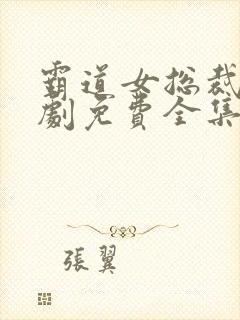 霸道女总裁
劇免費全集
張翼